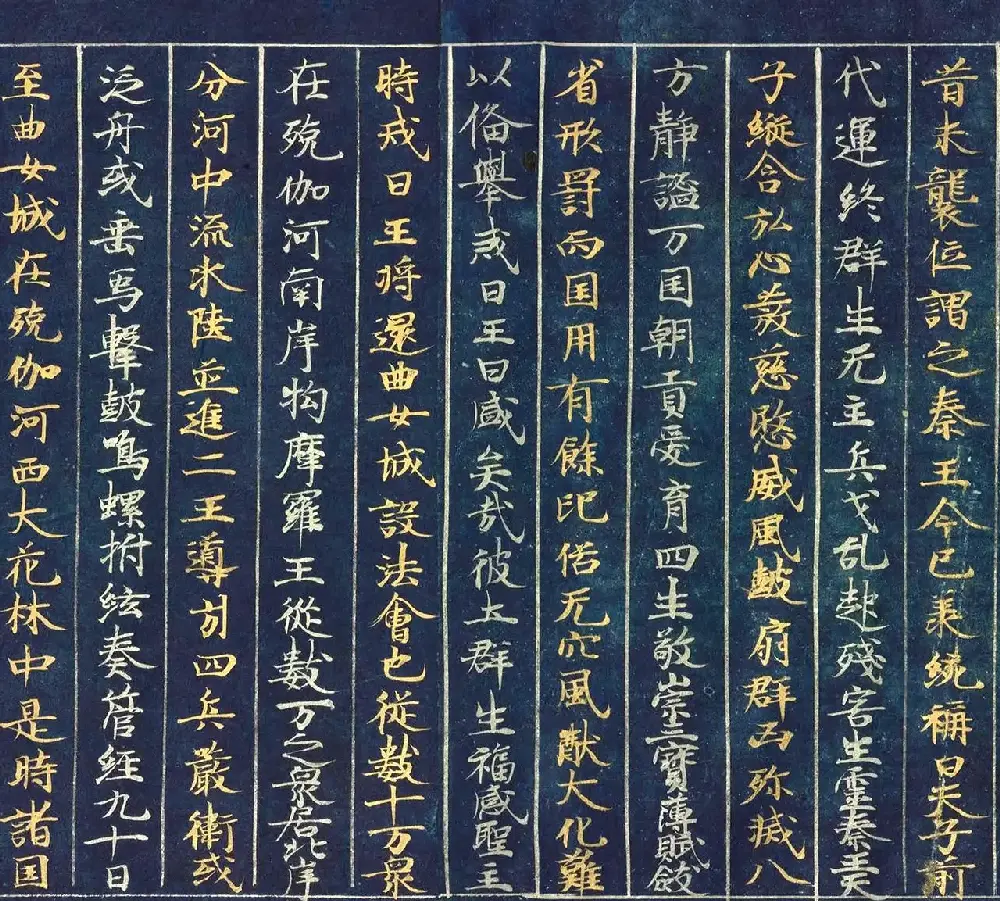 昔未襲位謂之秦王今已承統稱曰天子前
代運終群生无主兵戈乱起殘害生靈秦王天
子縱含弘心發慈愍威風鼓扇群凶殄滅八
方靜謐万国朝貢愛育四生敬崇三寶薄賦斂
省形罰而国用有餘氓俗无宄風猷大化難
以俻舉戒日王曰盛矣哉彼土群生福感聖主
時戒日王將還曲女城設法會也從數十万衆
在殑伽河南岸拘摩羅王從數万之衆居北岸
分河中流水陸並進二王導引四兵嚴衛或
泛舟或乘象擊鼓鳴螺拊絃奏管經九十日
至曲女城在殑伽河西大花林中是時諸国